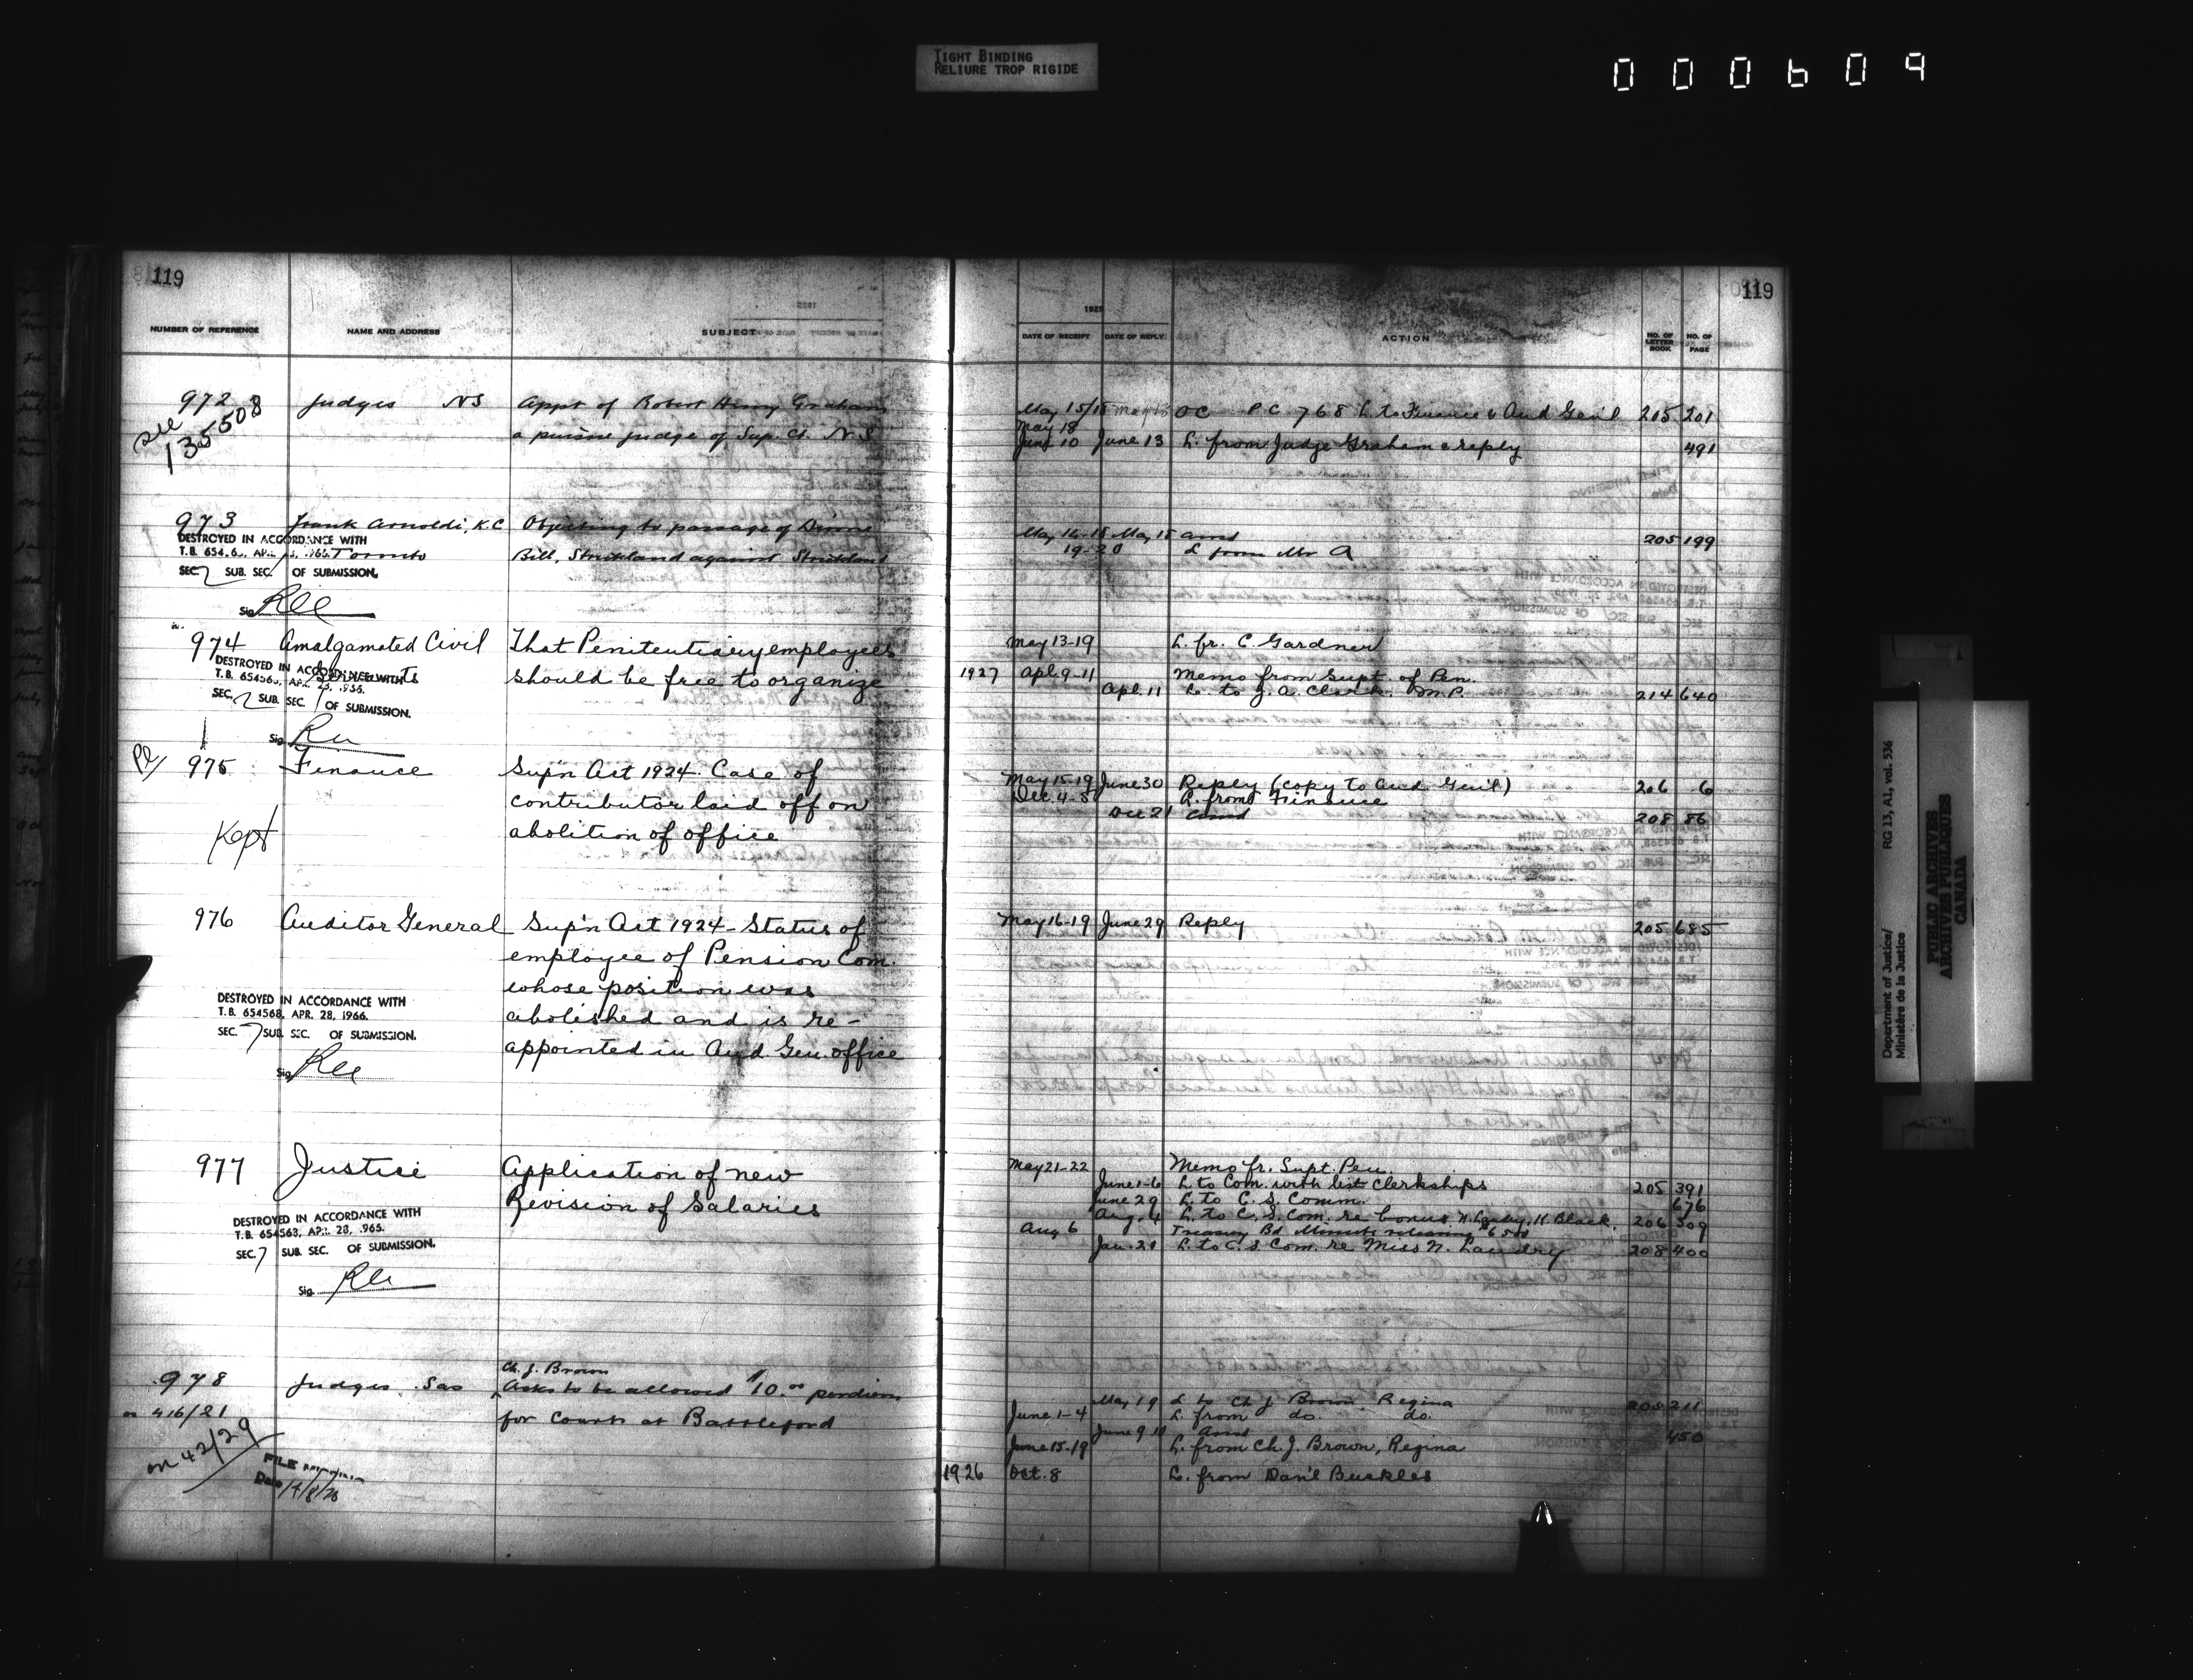 TIGHT BINDING
RELIURE TROP RIGIDE
000609
119
NUMBER OF REFERENCE NAME AND ADDRESS SUBJECT
972 Judges NS Appt of Robert Henry Graham
see 135508
a puisne judge of Sup. Ct. N.S
973 Frank Arnoldi, K.C Objecting to passage of Divorce
Toronto Bill, Strickland against Strickland
DESTROYED IN ACCORDANCE WITH
SEC. 7 SUB. SEC. OF SUBMISSION.
Sig.
974 Amalgamated Civil That Penitentiary employees
Servants should be free to organize
DESTROYED IN ACCORDANCE WITH
SEC. 7 SUB. SEC. OF SUBMISSION.
Sig.
975 Finance Sup'n Act 1924. Case of
contributor laid off on
Kept abolition of office
976 Auditor General Sup'n Act 1924 - Status of
employee of Pension Com.
whose position was
abolished and is re-
appointed in Aud Gen. office
DESTROYED IN ACCORDANCE WITH
T.B. 654568, APR. 28, 1966.
SEC. 7 SUB. SEC. OF SUBMISSION.
Sig.
977 Justice Application of new
Revision of Salaries
DESTROYED IN ACCORDANCE WITH
SEC. 7 SUB. SEC. OF SUBMISSION.
Sig.
Ch. J. Brown
978 Judges. Sas Asks to be allowed $10.00 per diem
on 416/21 for Courts at Battleford
on 42/29
FILE
Date
119
1925
DATE OF RECEIPT DATE OF REPLY ACTION NO. OF LETTER BOOK NO. OF PAGE
May 15/18 May 13 OC P.C 768 L to Finance & Aud Gen'l 205 201
May 18
June 10 June 13 L. from Judge Graham & reply 491
May 14-15 May 15 Ansd 205 199
19-20 L from Mr A
May 13-19 L. fr. C. Gardner
1927 Apl. 9-11 Memo from Supt. of Pen.
Apl. 11 L. to J. A. Clark. M.P. 214 640
May 15-19 June 30 Reply (copy to Aud. Gen'l) 206 6
Dec. 4-5 L. from Finance
Dec 21 Ansd 208 86
May 16-19 June 29 Reply 205 685
May 21-22 Memo fr. Supt. Pen.
June 1-6 L to Com. with list Clerkships 205 391
June 29 L. to C. S. Comm. 676
Aug. 4 L. to C. S. Com. re bonus. H. Black. 206 509
Aug 6 Treasury Bd Minute
Jan. 21 L. to C. S. Com. re Miss N. Landry 208 400
May 19 L to Ch J. Brown. Regina 205 211
June 1-4 L. from do. do.
June 9 Ansd 450
June 15-19 L. from Ch. J. Brown, Regina
1926 Oct. 8 L. from Dan'l Buckles
Department of Justice/
Ministère de la Justice
RG 13, A1, vol. 536
PUBLIC ARCHIVES
ARCHIVES PUBLIQUES
CANADA